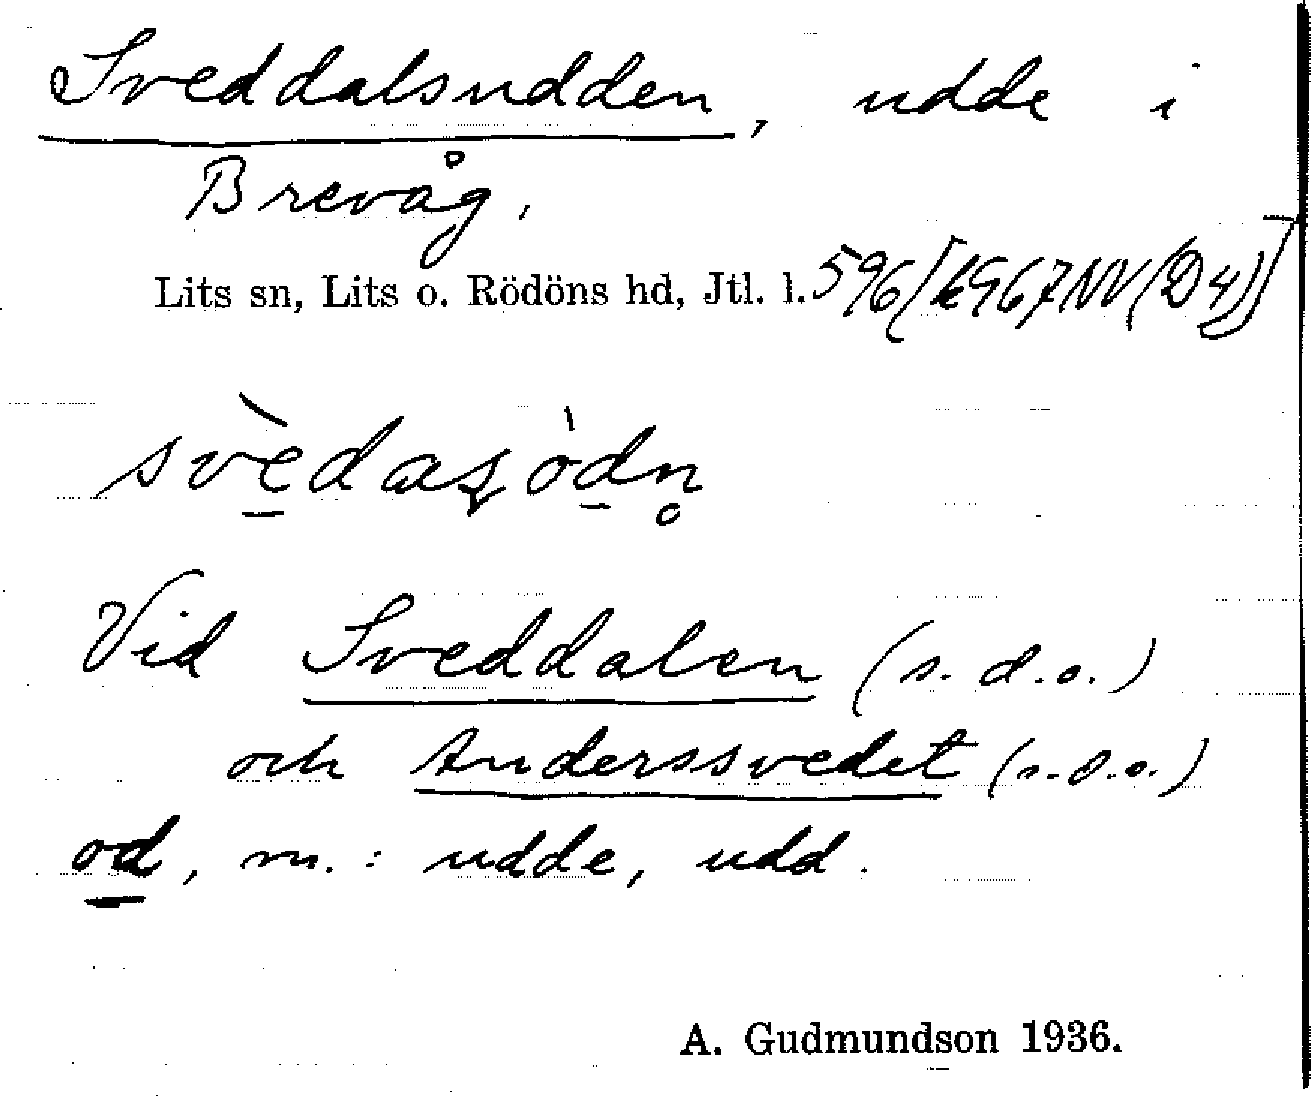 Sveddalsudden, udde i
Brevåg.
Lits sn, Lits o. Rödöns hd, Jtl. l. 596/[k967NV(D4)]
Vid Sveddalen (s.d.o.)
och Anderssvedet (s.d.o.)
od, m.: udde, udd.
A. Gudmundson 1936.